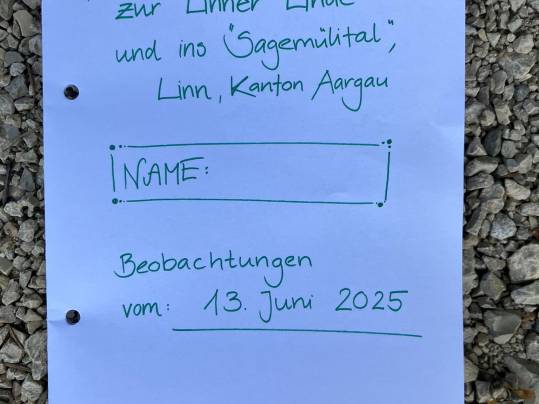 zur Linner Linde
und ins "Sagemülital",
Linn, Kanton Aargau
NAME:
Beobachtungen
vom: 13. Juni 2025